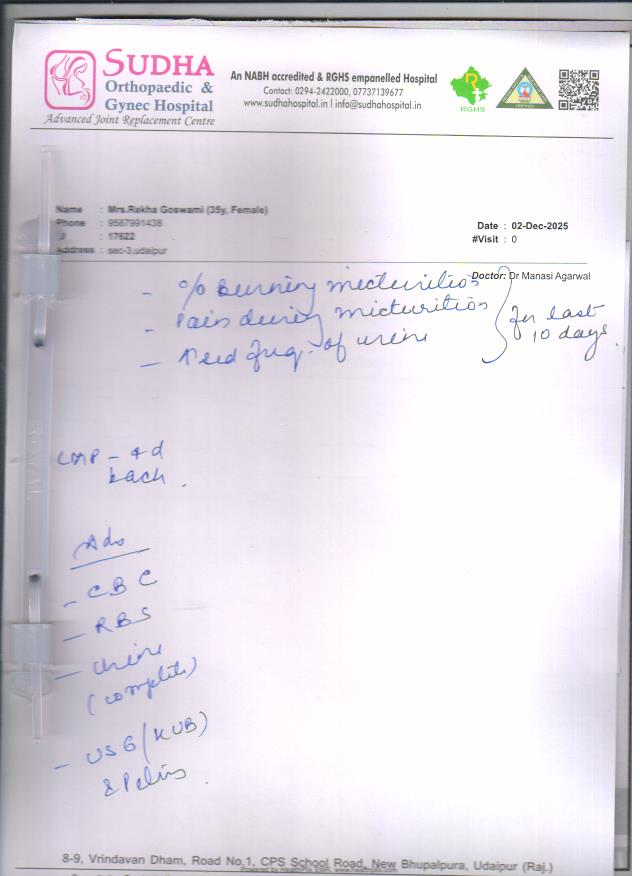 SUDHA
Orthopaedic &
Gynec Hospital
Advanced Joint Replacement Centre
An NABH accredited & RGHS empanelled Hospital
Contact: 0294-2422000, 07737139677
www.sudhahospital.in | info@sudhahospital.in
RGHS
Name : Mrs.Rekha Goswami (35y, Female)
Phone : 9587991438
: 17622
Address : sec-3,udaipur
Date : 02-Dec-2025
#Visit : 0
Doctor: Dr Manasi Agarwal
- c/o Burning micturition
- Pain during micturition
- ↑ed freq. of urine
for last
10 days.
LMP - 4d
back.
Adv
- CBC
- RBS
- Urine
(complete)
- USG (KUB)
& Pelvis.
8-9, Vrindavan Dham, Road No.1, CPS School Road, New Bhupalpura, Udaipur (Raj.)